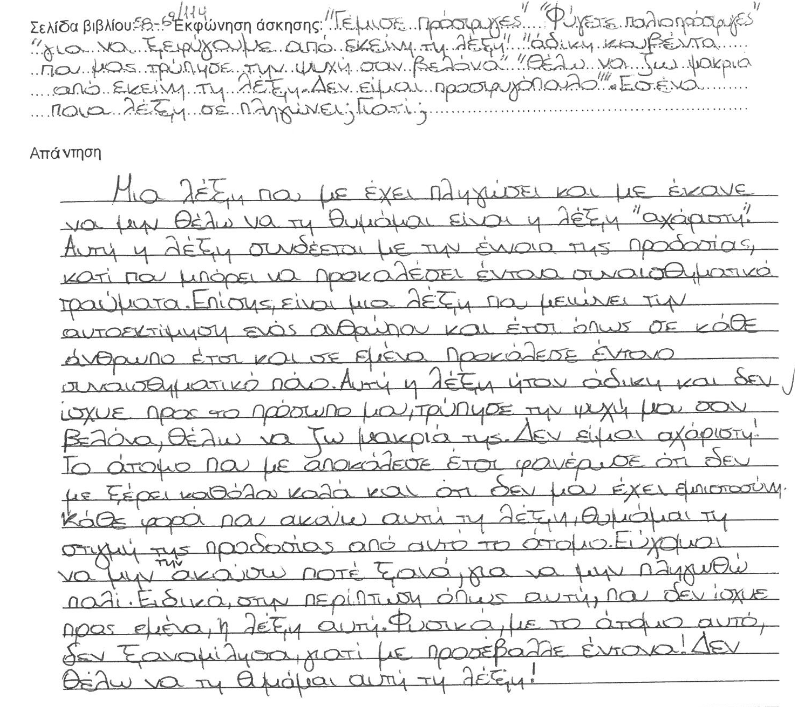 Σελίδα βιβλίου: 58-59/114 Εκφώνηση άσκησης: "Γέμισε πρόσφυγες" "Φύγετε παλιοπρόσφυγες"
"για να ξεφύγουμε από εκείνη τη λέξη" "άδικη κουβέντα
που μας τρύπησε την ψυχή σαν βελόνα" "Θέλω να ζω μακριά
από εκείνη τη λέξη. Δεν είμαι προσφυγόπουλο". Εσένα
ποια λέξη σε πληγώνει; Γιατί;
Απάντηση
Μια λέξη που με έχει πληγώσει και με έκανε
να μην θέλω να τη θυμάμαι είναι η λέξη "αχάριστη".
Αυτή η λέξη συνδέεται με την έννοια της προδοσίας,
κάτι που μπορεί να προκαλέσει έντονα συναισθηματικά
τραύματα. Επίσης, είναι μια λέξη που μειώνει την
αυτοεκτίμηση ενός ανθρώπου και έτσι όπως σε κάθε
άνθρωπο έτσι και σε εμένα προκάλεσε έντονο
συναισθηματικό πόνο. Αυτή η λέξη ήταν άδικη και δεν
ίσχυε προς το πρόσωπο μου, τρύπησε την ψυχή μου σαν
βελόνα, θέλω να ζω μακριά της. Δεν είμαι αχάριστη!
Το άτομο που με αποκάλεσε έτσι φανέρωσε ότι δεν
με ξέρει καθόλου καλά και ότι δεν μου έχει εμπιστοσύνη.
Κάθε φορά που ακούω αυτή τη λέξη, θυμάμαι τη
στιγμή της προδοσίας από αυτό το άτομο. Εύχομαι
να μην την ακούσω ποτέ ξανά, για να μην πληγωθώ
πάλι. Ειδικά, στην περίπτωση όπως αυτή, που δεν ίσχυε
προς εμένα, η λέξη αυτή. Φυσικά, με το άτομο αυτό,
δεν ξαναμίλησα, γιατί με προσέβαλλε έντονα! Δεν
θέλω να τη θυμάμαι αυτή τη λέξη!